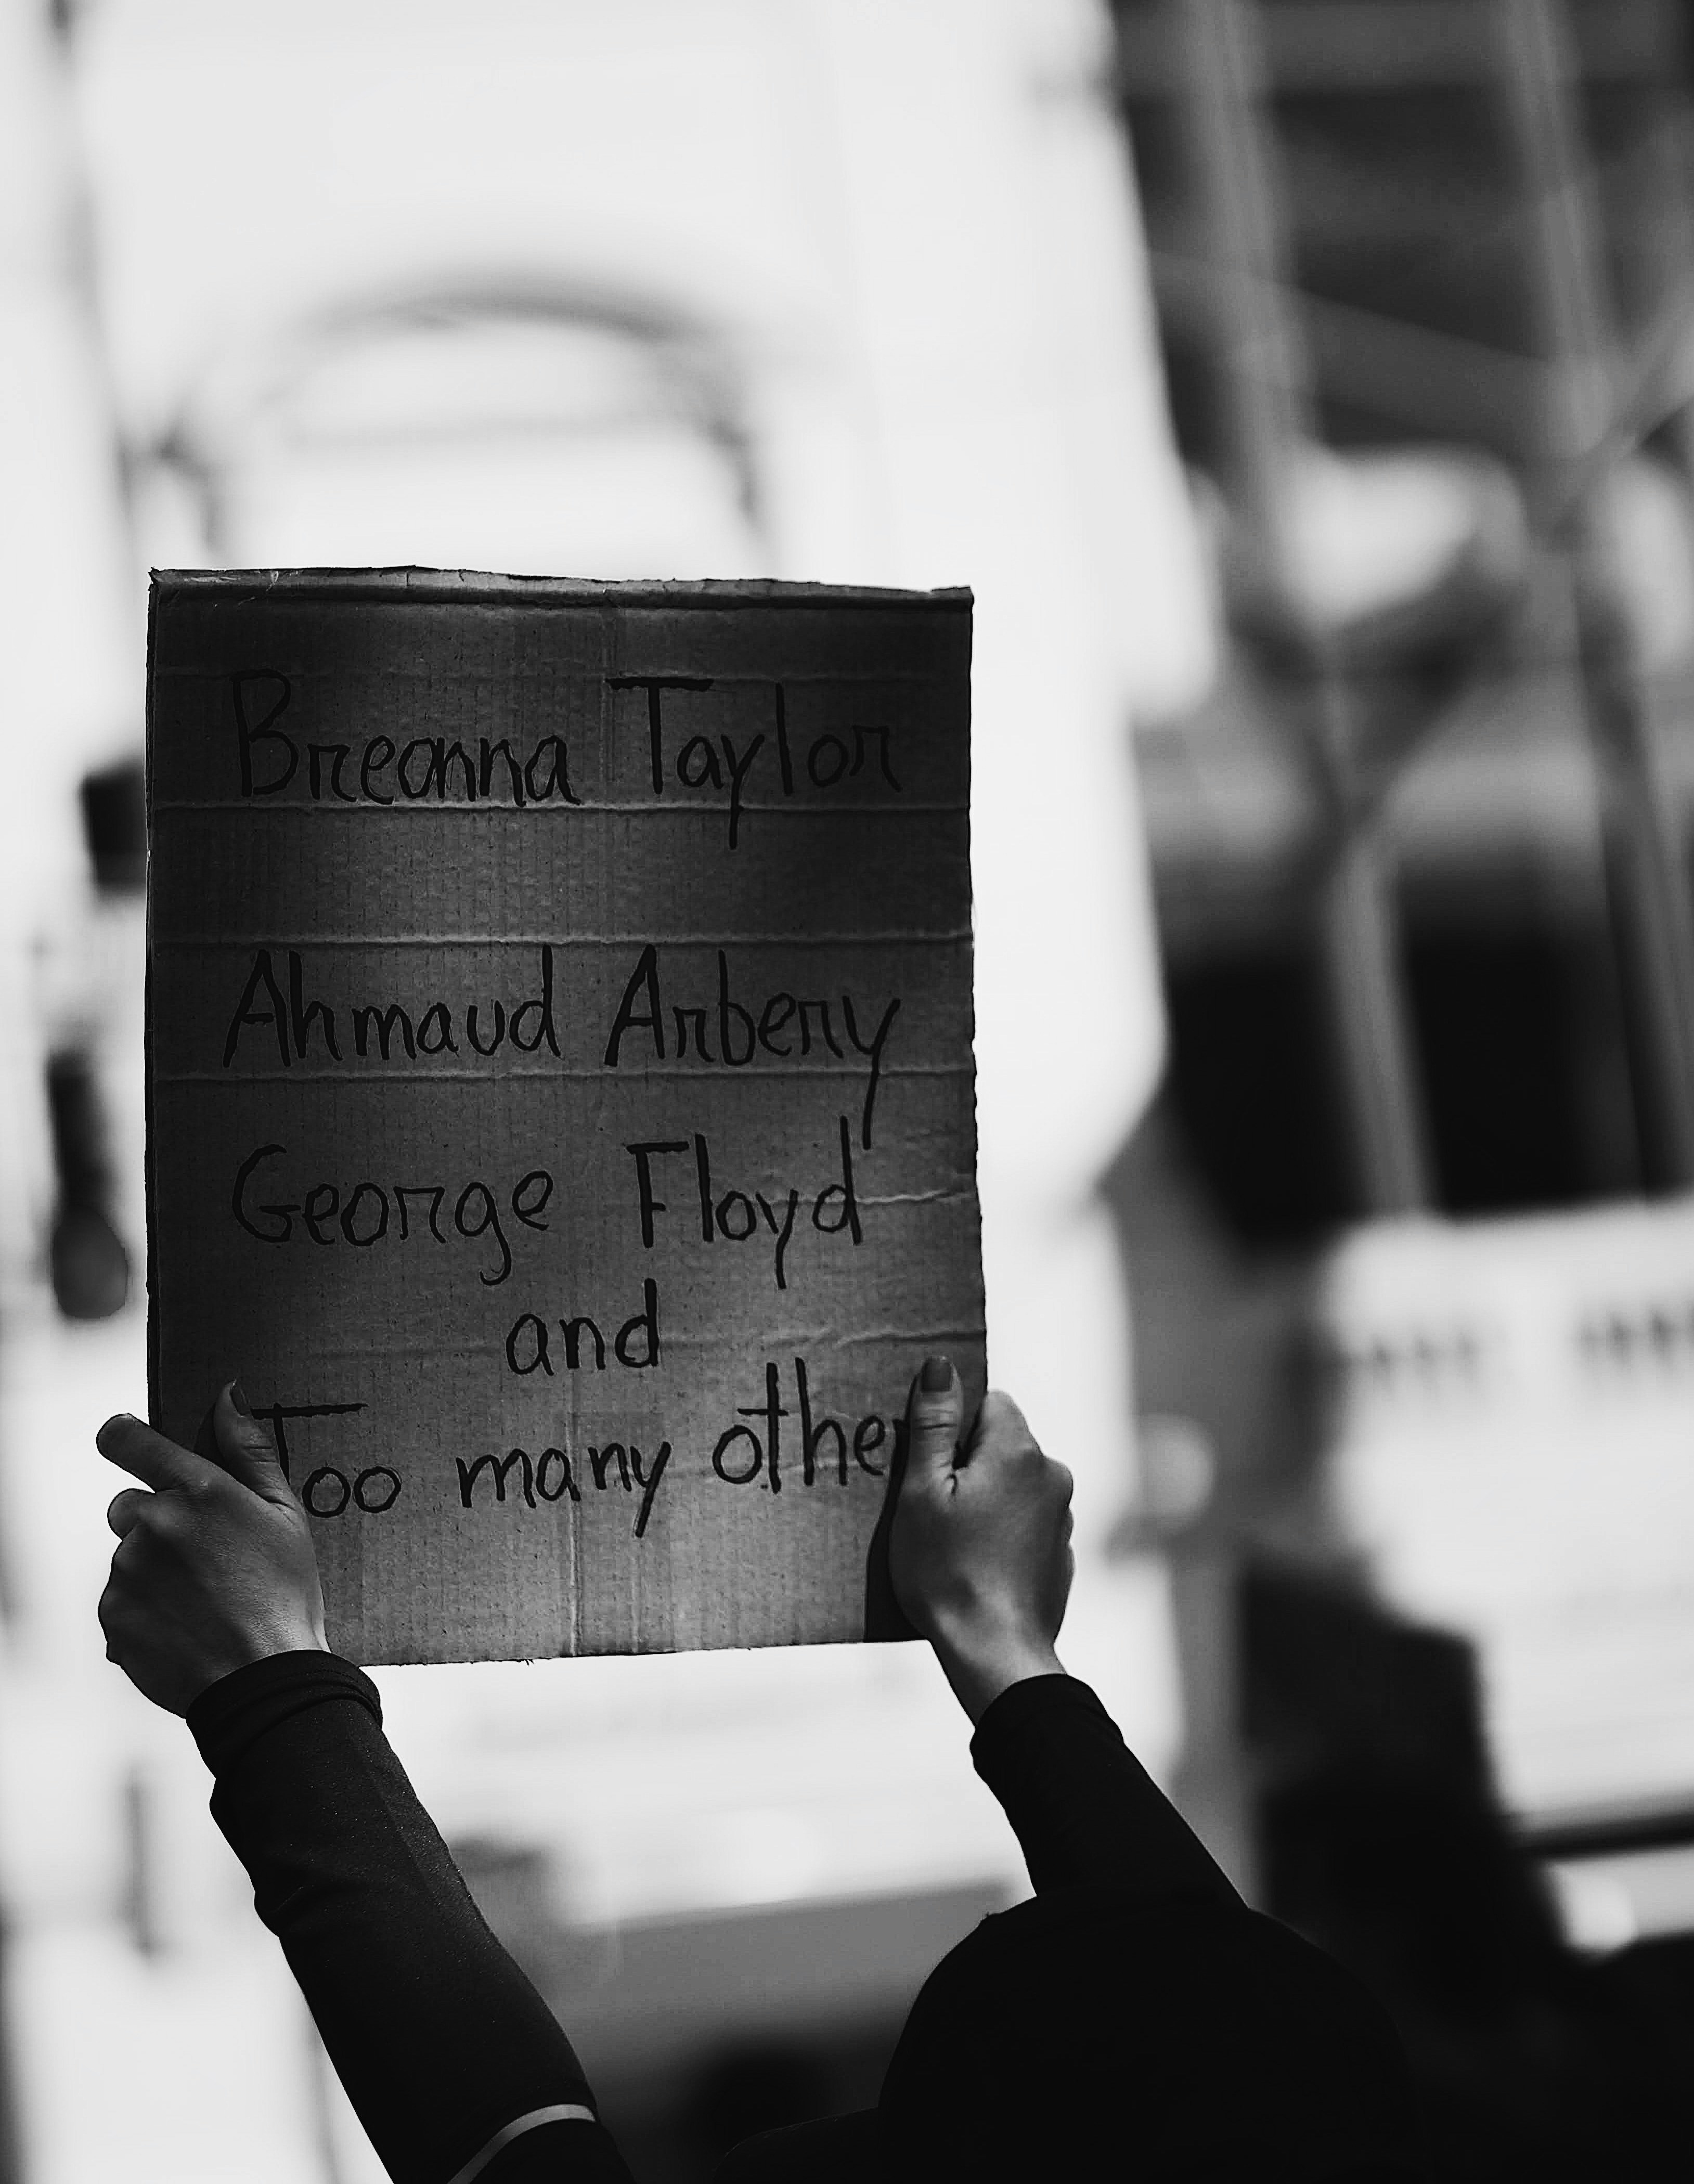 Breonna Taylor
Ahmaud Arbery
George Floyd
and
Too many other